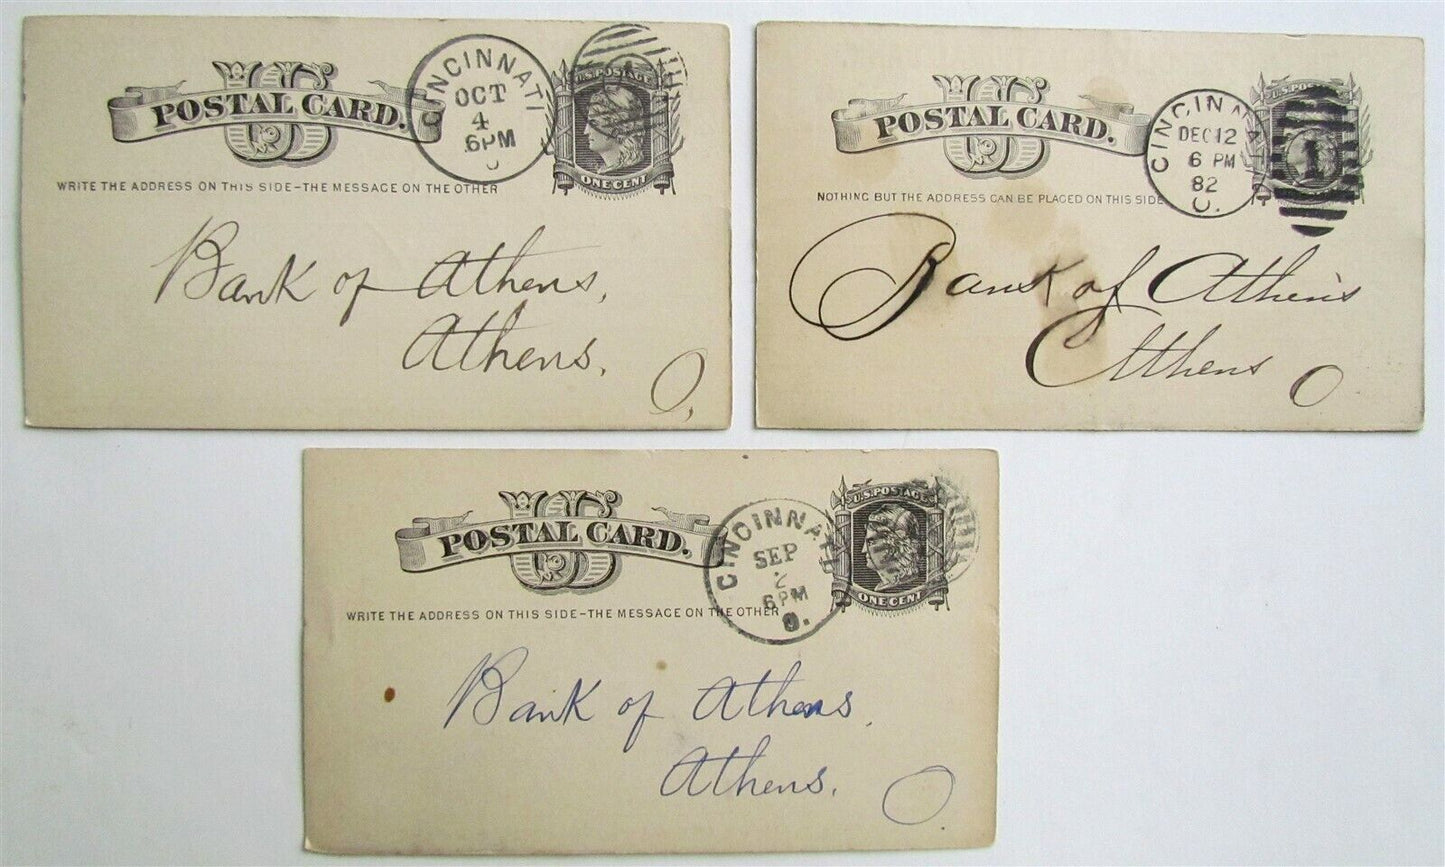 US
POSTAL CARD.
CINCINNATI
OCT
4
6PM
O
U.S. POSTAGE
ONE CENT
WRITE THE ADDRESS ON THIS SIDE-THE MESSAGE ON THE OTHER
Bank of Athens,
Athens,
O,
US
POSTAL CARD.
CINCINNATI
DEC 12
6 PM
82
O.
U.S. POSTAGE
1
NOTHING BUT THE ADDRESS CAN BE PLACED ON THIS SIDE
Bank of Athens
Athens
O
US
POSTAL CARD.
CINCINNATI
SEP
2
6PM
O.
U.S. POSTAGE
ONE CENT
WRITE THE ADDRESS ON THIS SIDE-THE MESSAGE ON THE OTHER
Bank of Athens,
Athens.
O